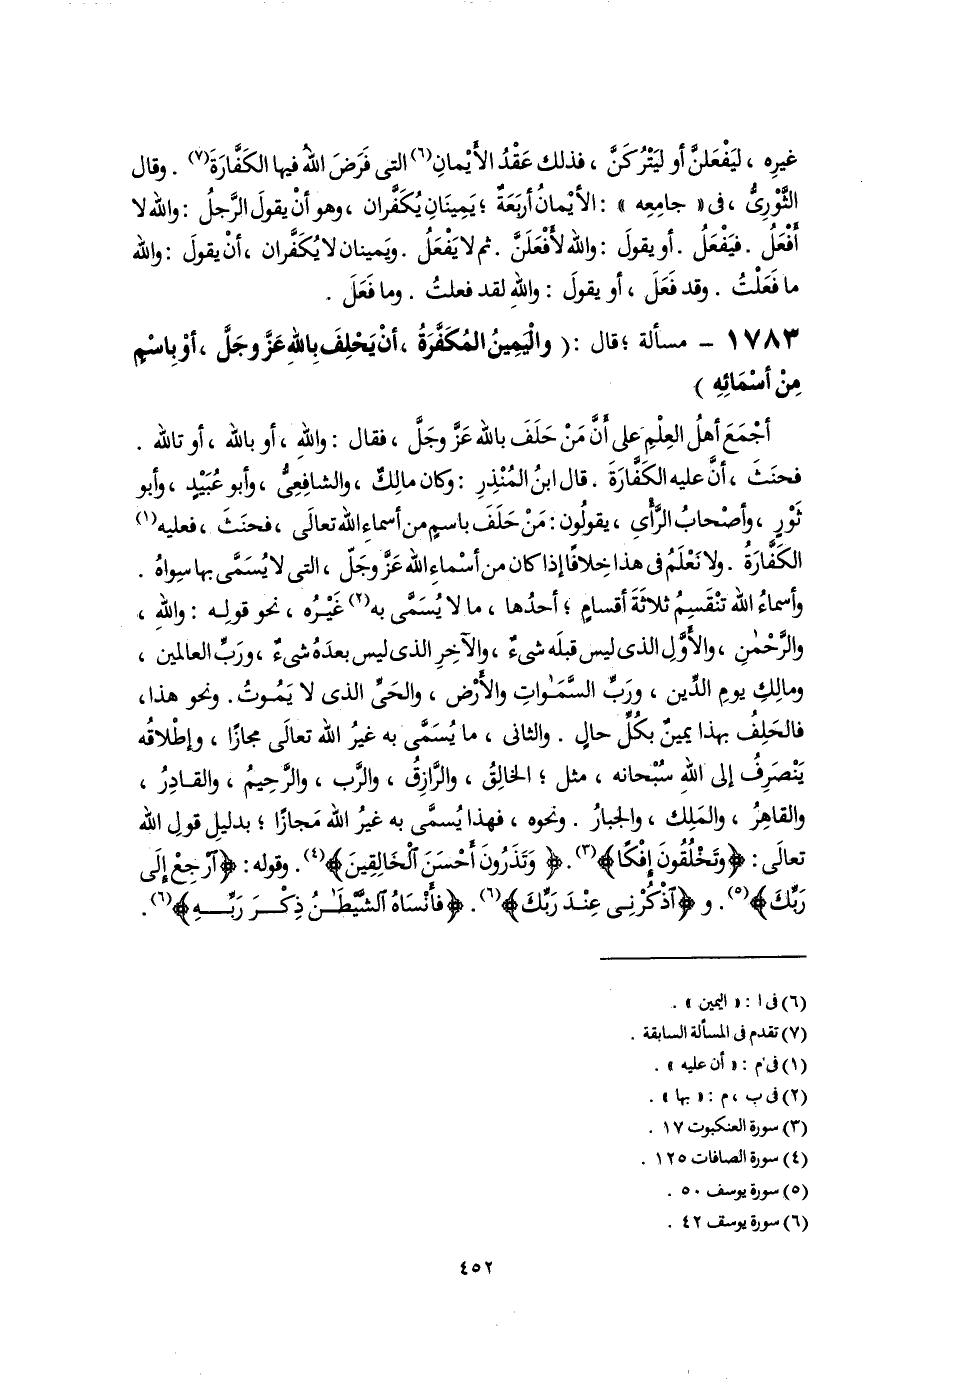 غيرِه ، ليَفْعَلنَّ أو ليَتْرُكَنَّ ، فذلك عَقْدُ الأَيْمانِ(٦) التى فَرَضَ اللهُ فيها الكَفَّارَةَ(٧) . وقال
الثَّوْرِىُّ ، فى « جامِعِه » : الأيْمانُ أربَعَةٌ ؛ يَمِينَانِ يُكَفَّران ، وهو أنْ يقولَ الرَّجلُ : واللهِ لا
أفْعَلُ . فيَفْعَلُ . أو يقولَ : واللهِ لأفْعَلَنَّ . ثم لا يَفْعَلُ . ويَمينان لا يُكَفَّران ، أنْ يقولَ : واللهِ
ما فَعَلْتُ . وقد فَعَلَ ، أو يقولَ : واللهِ لقد فعلتُ . وما فَعَلَ .
١٧٨٣ – مسألة ؛ قال : ( والْيَمِينُ المُكَفَّرَةُ ، أنْ يَحْلِفَ بِاللهِ عَزَّ وجَلَّ ، أوْ بِاسْمٍ
مِنْ أسْمَائِهِ )
أجْمَعَ أهلُ العِلْمِ على أنَّ مَنْ حَلَفَ بالله عَزَّ وجَلَّ ، فقال : واللهِ ، أو بالله ، أو تالله .
فحنَثَ ، أنَّ عليه الكَفَّارَةَ . قال ابنُ المُنْذِرِ : وكان مالِكٌ ، والشافِعِىُّ ، وأبو عُبَيْدٍ ، وأبو
ثَوْرٍ ، وأصْحابُ الرَّأْىِ ، يقولُون : مَنْ حَلَفَ باسمٍ من أسماءِ الله تعالَى ، فحنَثَ ، فعليه(١)
الكَفَّارَةُ . ولا نَعْلَمُ فى هذا خِلافًا إذا كان من أسْماءِ الله عَزَّ وجَلّ ، التى لا يُسَمَّى بها سِواهُ .
وأسماءُ الله تنْقَسِمُ ثلاثَةَ أقسامٍ ؛ أحدُها ، ما لا يُسَمَّى به(٢) غَيْرُه ، نحو قولِه : واللهِ ،
والرَّحْمٰنِ ، والأَوَّلِ الذى ليس قبلَه شىءٌ ، والآخِرِ الذى ليس بعدَهُ شىءٌ ، ورَبِّ العالمين ،
ومالِكِ يومِ الدِّين ، ورَبِّ السَّمَٰواتِ والأَرْض ، والحَىِّ الذى لا يَمُوتُ . ونحو هذا ،
فالحَلِفُ بهذا يمينٌ بكُلِّ حالٍ . والثانى ، ما يُسَمَّى به غيرُ الله تعالَى مجازًا ، وإطْلاقُه
يَنْصَرِفُ إلى اللهِ سُبْحانه ، مثل ؛ الخالِقُ ، والرَّازِقُ ، والرَّب ، والرَّحِيمُ ، والقادِرُ ،
والقاهِرُ ، والمَلِك ، والجبارُ . ونحوه ، فهذا يُسمَّى به غيرُ الله مَجازًا ؛ بدليلِ قولِ الله
تعالَى : ﴿وتَخْلُقُونَ إِفْكًا﴾(٣) . ﴿ وَتَذَرُونَ أَحْسَنَ ٱلْخَالِقِينَ﴾(٤) . وقوله : ﴿ٱرْجِعْ إِلَى
رَبِّكَ﴾(٥) . و ﴿ٱذْكُرْنِى عِنْدَ رَبِّكَ﴾(٦) . ﴿فأَنْسَاهُ ٱلشَّيْطَٰنُ ذِكْرَ رَبِّهِ﴾(٦) .
(٦) فى ا : « اليمين » .
(٧) تقدم فى المسألة السابقة .
(١) فى م : « أن عليه » .
(٢) فى ب ، م : « بها » .
(٣) سورة العنكبوت ١٧ .
(٤) سورة الصافات ١٢٥ .
(٥) سورة يوسف ٥٠ .
(٦) سورة يوسف ٤٢ .
٤٥٢